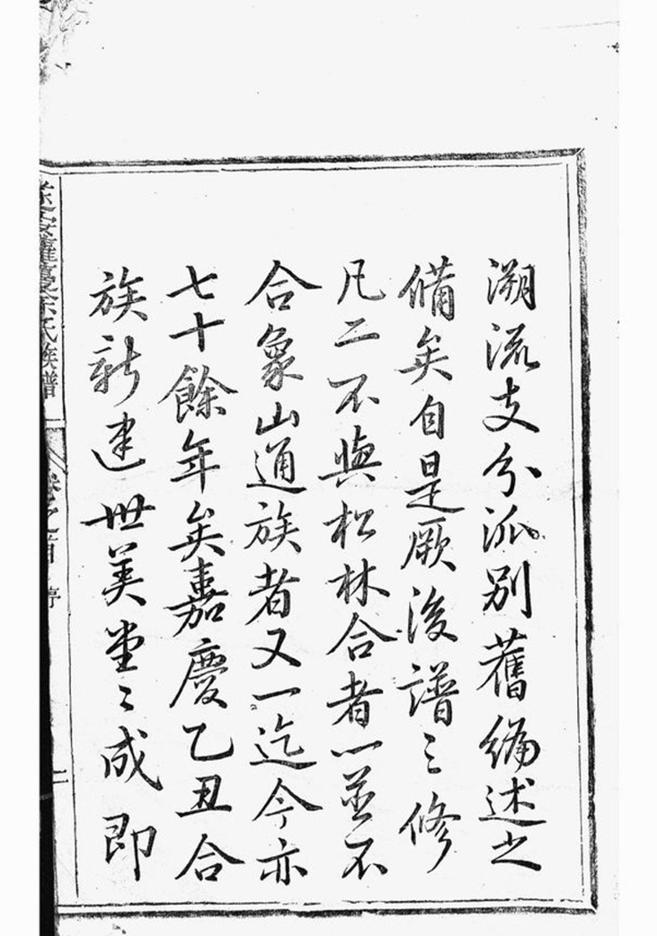 溯流支分派别舊编述之
备矣自是厥後譜之修
凡二不與松林合者一並不
合象山通族者又一迄今亦
七十餘年矣嘉慶乙丑合
族新建世美堂〻成即
余氏族譜
卷之首 序